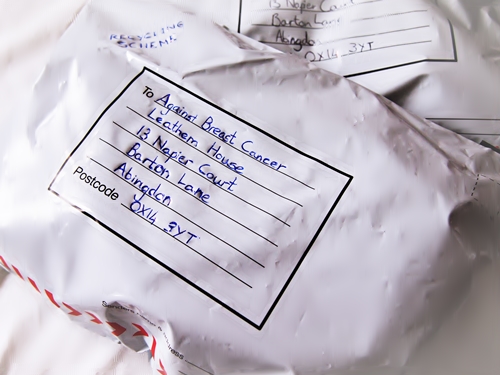 RECYCLING
SCHEME
13 Napier Court
Barton Lane
Abingdo
OX14 3YT
To Against Breast Cancer
Leathem House
13 Napier Court
Barton Lane
Abingdon
Postcode OX14 3YT